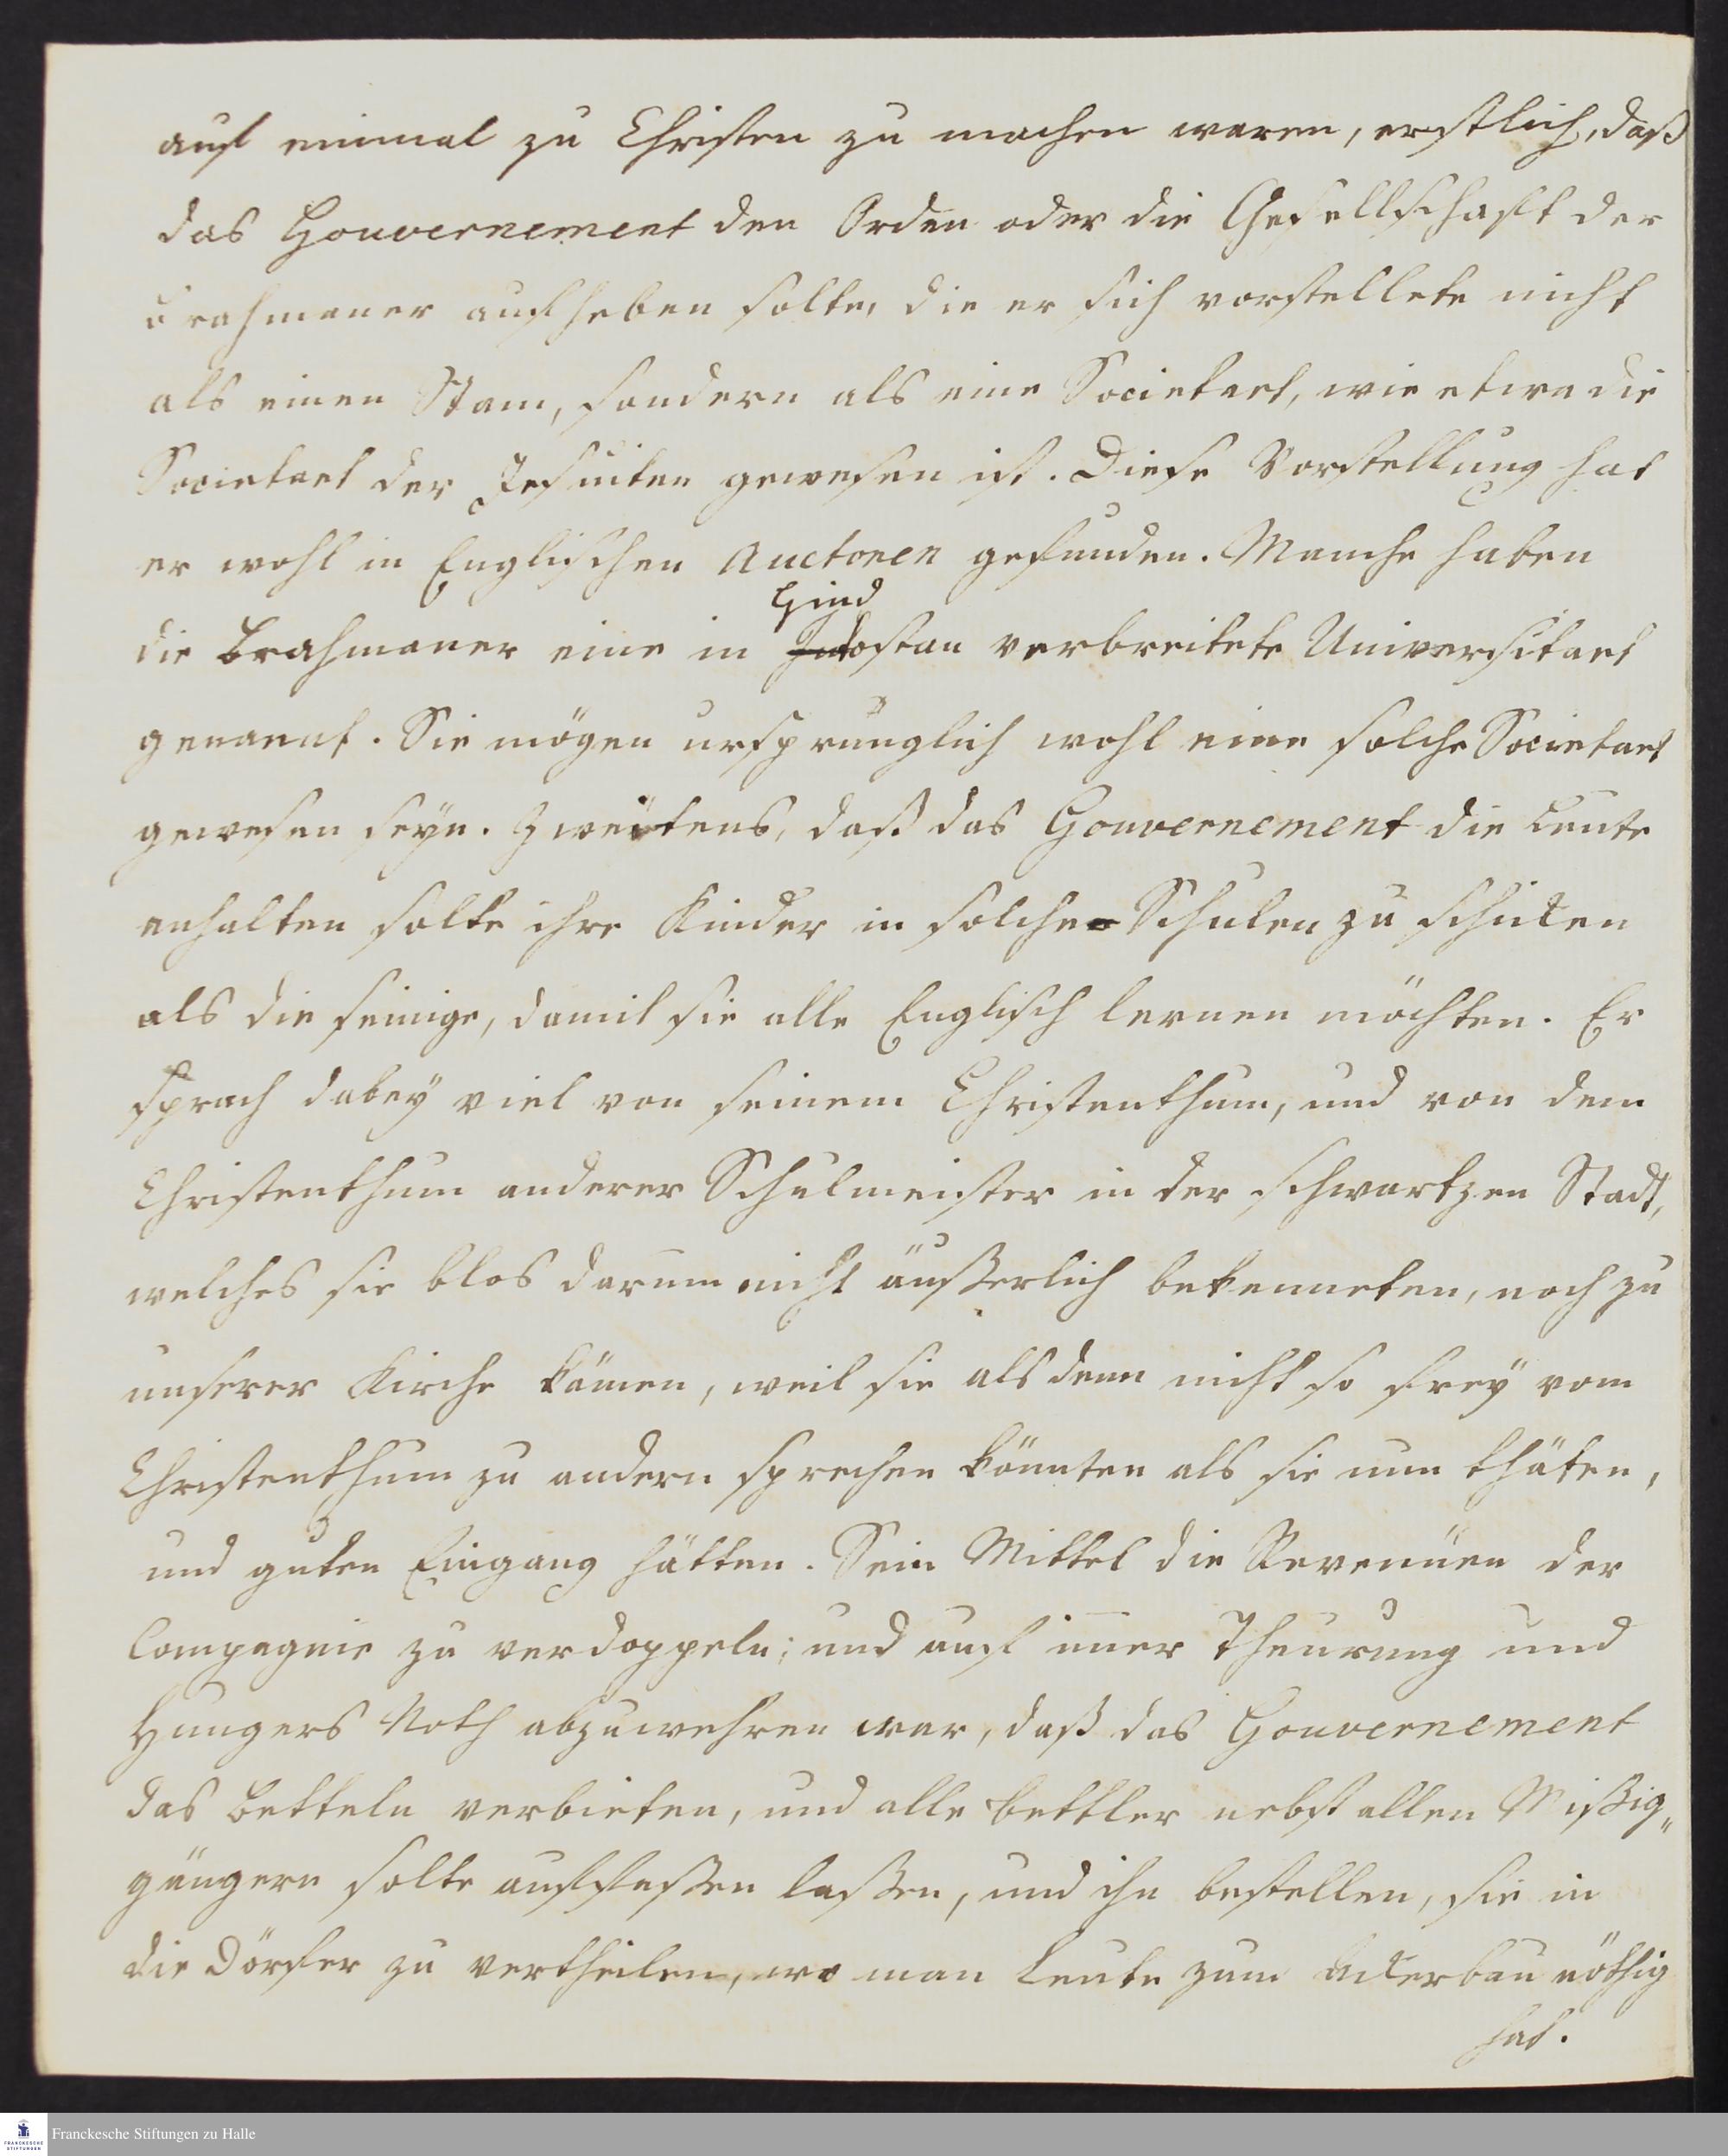 auf einmal zu Christen zu machen waren, erstlich, daß
das Gouvernement den Orden oder die Gesellschaft der
Brahmaner aufheben solte, die er sich vorstellete nicht
als einen Stam, sondern als eine Societaet, wie etwa die
Societaet der Jesuiten gewesen ist. Diese Vorstellung hat
er wohl in Englischen Auctoren gefunden. Manche haben
Hind
die Brahmaner eine in Indostan verbreitete Universitaet
genannt. Sie mögen ursprünglich wohl eine solche Societaet
gewesen seyn. Zweitens, daß das Gouvernement die Leute
anhalten solte ihre Kinder in solche Schulen zu schicken
als die seinige, damit sie alle Englisch lernen möchten. Er
sprach dabey viel von seinem Christenthum, und von dem
Christenthum anderer Schulmeister in der schwartzen Stadt,
welches sie blos darum nicht äußerlich bekenneten, noch zu
unserer Kirche kämen, weil sie alsdenn nicht so frey vom
Christenthum zu andern sprechen könnten als sie nun thäten,
und guten Eingang hätten. Sein Mittel die Revenüen der
Compagnie zu verdoppeln; und auf im̅er Theurung und
Hungers Noth abzuwehren war, daß das Gouvernement
das Betteln verbieten, und alle Bettler nebst allen Müßig„
gängern solte auffassen laßen, und ihn bestellen, sie in
die Dörfer zu vertheilen, wo man Leute zum Ackerbau nöthig
hat.
FRANCKESCHE STIFTUNGEN
Franckesche Stiftungen zu Halle